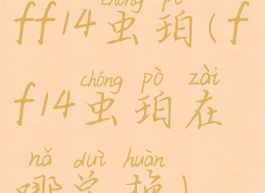 chóng pò
ff14虫珀(f
chóng pò zài
f14虫珀在
nǎ duì huàn
哪兑换)